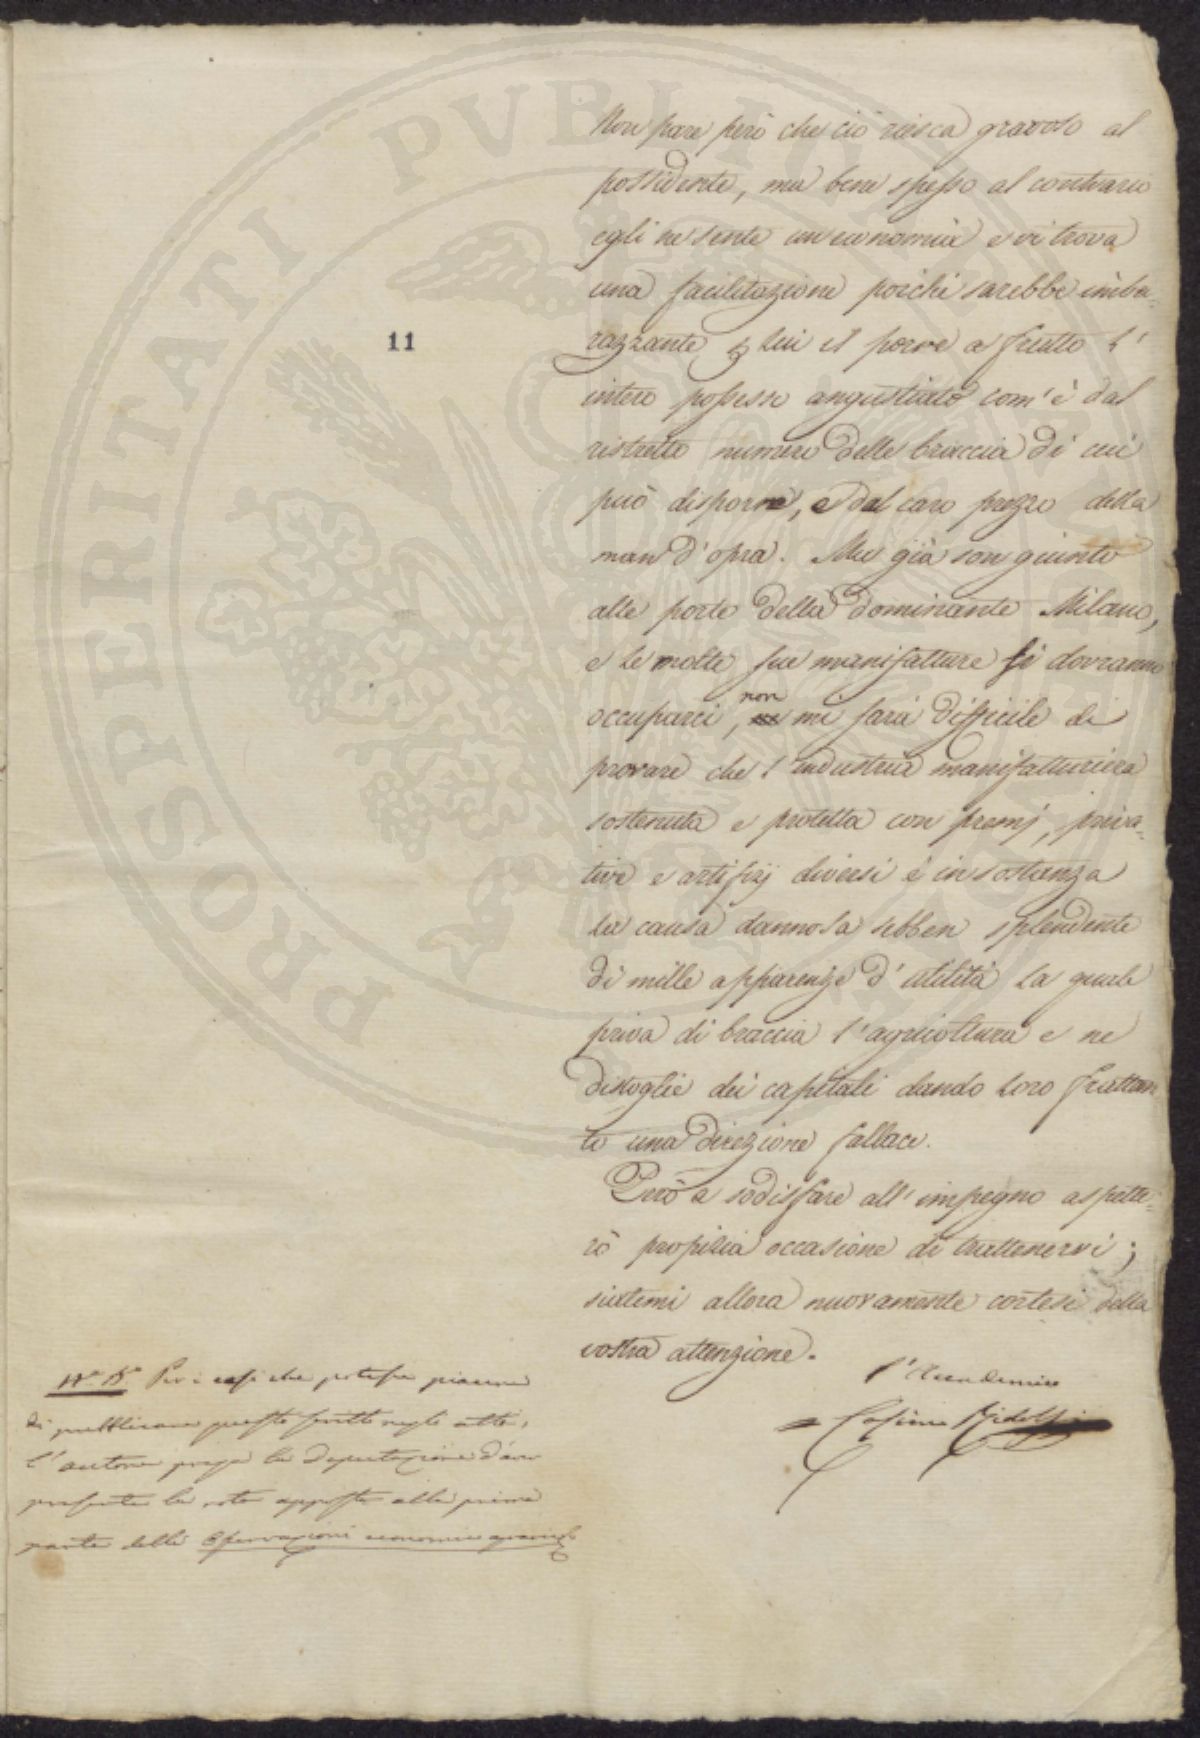 Non pare però che ciò riesca gravoso al
possidente, ma bene spesso al contrario
egli ne sente un'economia e vi trova
una facilitazione poichè sarebbe imba-
razzante p lui il porre a frutto l'
intero possesso angustiato com'è dal
ristretto numero delle braccia di cui
può disporre, e dal caro prezzo della
man d'opra. Ma già son giunto
alle porte della dominante Milano,
e le molte sue manifatture si dovranno
occuparci, non mi sarà difficile di
provare che l'industria manifatturiera
sostenuta e protetta con premj, priva-
tive e artifizj diversi è in sostanza
la causa dannosa sebben splendente
di mille apparenze d'utilità la quale
priva di braccia l'agricoltura e ne
distoglie dei capitali dando loro frattan
to una direzione fallace.
Però a sodisfare all'impegno aspette-
rò propizia occasione di trattenervi;
siatemi allora nuovamente cortesi della
vostra attenzione.
l'Accademico
Cosimo Ridolfi
11
Nª Bª Per i casi che potesse piacere
di pubblicare questo scritto negli atti,
l'autore prega la Deputazione d'aver
presente le note apposte alla prima
parte delle Osservazioni economico agrarie
PROSPERITATI PVBLICAE